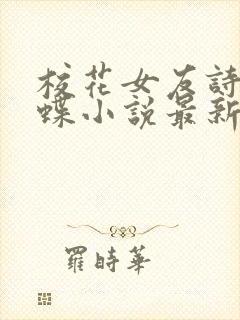 校花女友詩
蝶小說最新
羅時華